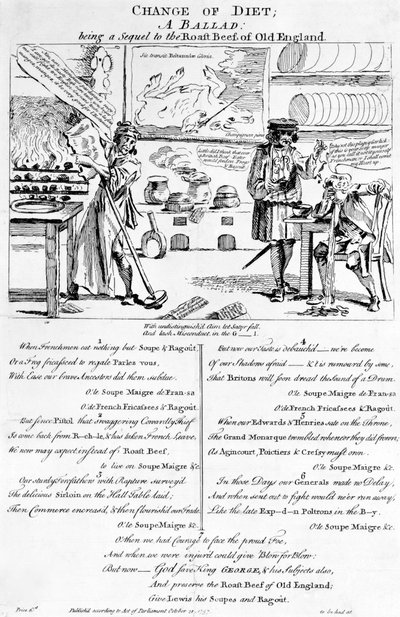 CHANGE OF DIET;
A BALLAD:
being a Sequel to the Roast Beef of Old England.
Sic transit Britanniæ Gloria.
Champignon pinx
With undistinguish'd Aim let Satyr fall.
And lash Misconduct, in the G——l.
1
When Frenchmen eat nothing but Soupe & Ragoût,
Or a Frog fricaseed to regale Parles vous,
With Ease our brave Ancestors did them subdue.
O! le Soupe Maigre de Fran-sa
O! de French Fricasees & Ragoût.
2
But since Pistol that swaggering Cowardly Thief
Is come back from R-ch-le, & has taken French Leave,
We now may expect instead of Roast Beef,
to live on Soupe Maigre &c
3
Our sturdy Forefathers with Rapture survey'd
The delicious Sirloin on the Hall Table laid;
Then Commerce encreas'd, & then flourish'd our Trade.
O! le Soupe Maigre &c.
4
But now our Taste is debauch'd — we're become
Of our Shadows afraid — & it is rumour'd by some,
That Britons will soon dread the Sound of a Drum.
O! le Soupe Maigre de Fran-sa
O! de French Fricasees & Ragoût.
5
When our Edwards & Henries sate on the Throne,
The Grand Monarque trembled whene'er they did frown;
As Agincourt, Poictiers & Cressy must own.
O! le Soupe Maigre &c.
6
In those Days our Generals made no Delay,
And when sent out to fight would ne'er run away,
Like the late Exp--d--n Poltrons in the B--y.
O! le Soupe Maigre &c.
O then we had Courage to face the proud Foe,
And when we were injur'd could give Blow for Blow:
But now — God save King GEORGE, & his Subjects also,
And preserve the Roast Beef of Old England;
Give Lewis his Soupes and Ragoût.
Price 6d
Publish'd according to Act of Parliament October 21, 1757.
to be had at